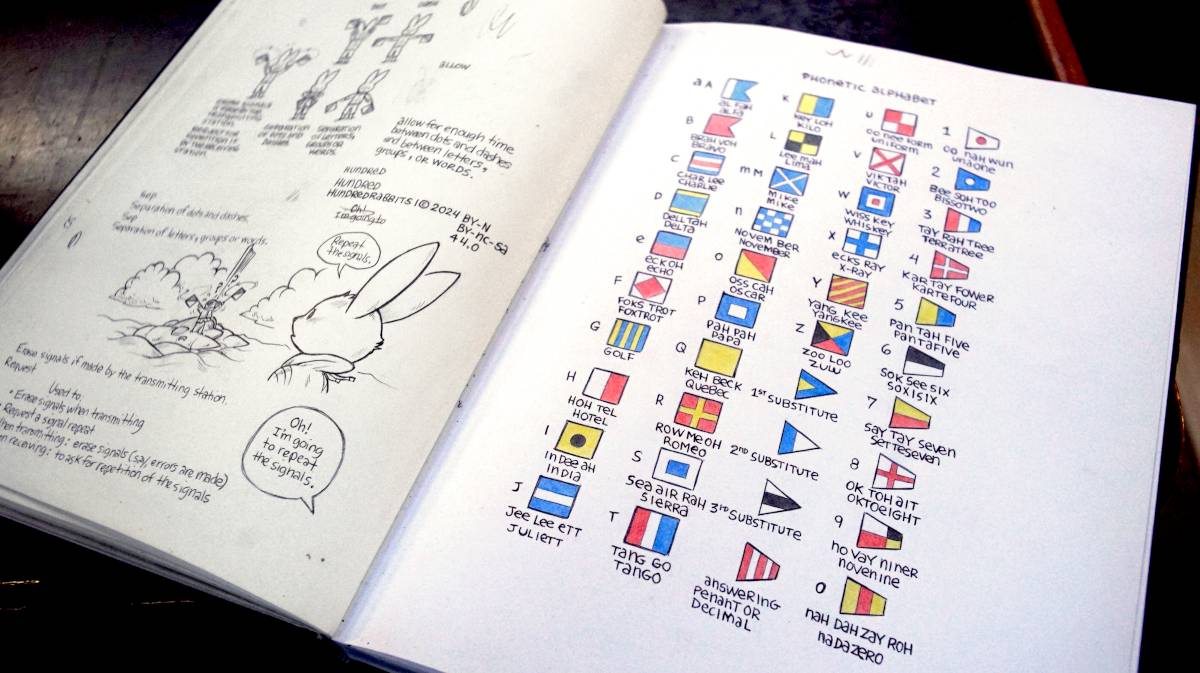 allow
allow for enough time
between dots and dashes
and between letters,
groups, or words.
SEPARATION
OF DOTS AND
DASHES.
SEPARATION
OF LETTERS,
GROUPS OR
WORDS.
HUNDRED
HUNDRED
HUNDREDRABBITS © 2024 BY-N
BY-nc-Sa
4.0
Oh!
I'm going to
Sep
Separation of dots and dashes.
Sep
Separation of letters, groups or words.
Repeat
the signals.
Erase signals if made by the transmitting station.
Request
Used to:
• Erase signals when transmitting
• Request a signal repeat
when transmitting: erase signals (say, errors are made)
receiving: to ask for repetition of the signals
Oh!
I'm going
to repeat
the signals.
PHONETIC ALPHABET
a A
AL FAH
ALFA
B
BRAH VOH
BRAVO
C
CHAR LEE
CHARLIE
D
DELL TAH
DELTA
e
ECK OH
ECHO
F
FOKS TROT
FOXTROT
G
GOLF
H
HOH TEL
HOTEL
I
In Dee aH
InDIa
J
Jee Lee ETT
JULIETT
K
KEY LOH
KILO
L
Lee maH
Lima
m M
MIKE
MIKE
n
NOVEM BER
NOVEMBER
O
OSS CAH
OSCAR
P
PAH PAH
PAPA
Q
KEH BECK
QUEBEC
R
ROW ME OH
ROMEO
S
Sea air RaH
Sierra
T
TanG GO
TANGO
U
YOO nee FORM
UNIFORM
V
VIK TAH
VICTOR
W
WISS KEY
WHISKEY
X
ecks RAY
X-RAY
Y
YanG Kee
Yankee
Z
ZOO LOO
ZULU
1ST SUBSTITUTE
2ND SUBSTITUTE
3RD SUBSTITUTE
answering
Penant or
DECimaL
1
OO naH wun
unaone
2
Bee SOH TOO
BISSOTWO
3
TAY RAH TREE
TERRATREE
4
KAR TAY FOWER
KARTEFOUR
5
Pan TaH Five
PanTaFive
6
SOK See Six
SOXISIX
7
Say Tay Seven
SETTESEVEN
8
OK TOH aIT
OKTOEIGHT
9
no vay niner
novenine
0
naH DaH ZaY ROH
naDaZERO